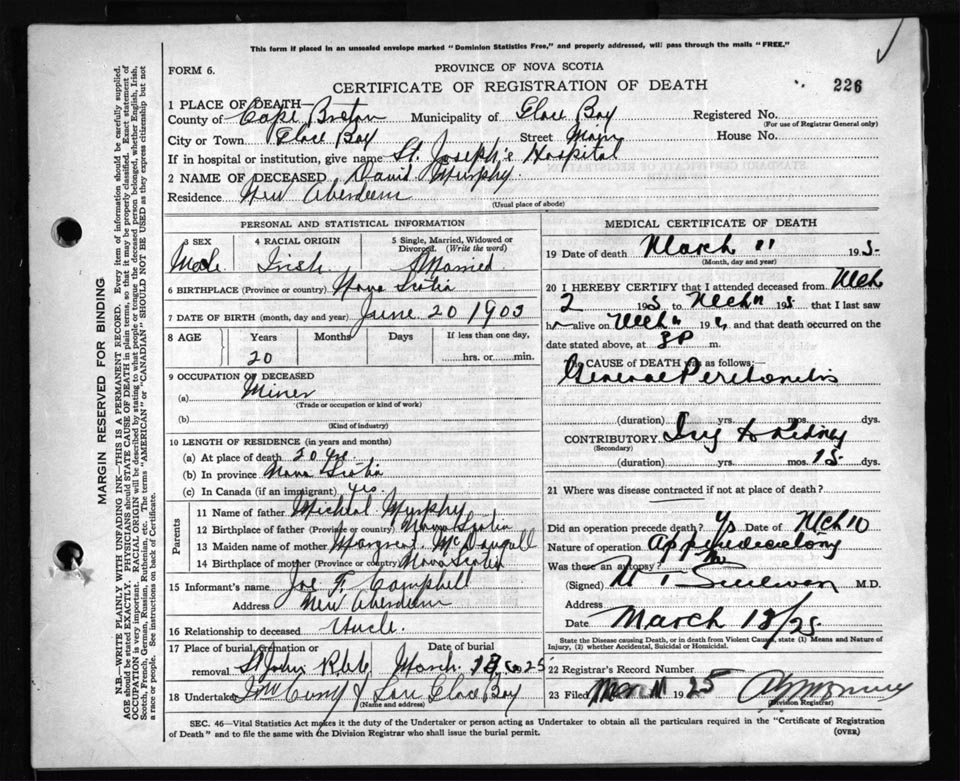 This form if placed in an unsealed envelope marked "Dominion Statistics Free," and properly addressed, will pass through the mails "FREE."
FORM 6.
PROVINCE OF NOVA SCOTIA
CERTIFICATE OF REGISTRATION OF DEATH
226
1 PLACE OF DEATH—
County of Cape Breton Municipality of Glace Bay Registered No.
(For use of Registrar General only)
City or Town Glace Bay Street Main House No.
If in hospital or institution, give name St. Joseph's Hospital
2 NAME OF DECEASED David Murphy
Residence New Aberdeen
(Usual place of abode)
MARGIN RESERVED FOR BINDING
N.B.—WRITE PLAINLY WITH UNFADING INK—THIS IS A PERMANENT RECORD. Every item of information should be carefully supplied.
AGE should be stated EXACTLY. PHYSICIANS should STATE CAUSE OF DEATH in plain terms, so that it may be properly classified. Exact statement of
OCCUPATION is very important. RACIAL ORIGIN will be described by stating to what people or tongue the deceased person belonged, whether English, Irish,
Scotch, French, German, Russian, Ruthenian, etc. The terms "AMERICAN" or "CANADIAN" SHOULD NOT BE USED as they express citizenship but not
a race or people. See instructions on back of Certificate.
PERSONAL AND STATISTICAL INFORMATION
3 SEX
Male
4 RACIAL ORIGIN
Irish
5 Single, Married, Widowed or
Divorced. (Write the word)
Married
6 BIRTHPLACE (Province or country) Nova Scotia
7 DATE OF BIRTH (month, day and year) June 20 1903
8 AGE Years Months Days If less than one day,
20 hrs. or min.
9 OCCUPATION OF DECEASED
(a) Miner
(Trade or occupation or kind of work)
(b)
(Kind of industry)
10 LENGTH OF RESIDENCE (in years and months)
(a) At place of death 20 yrs
(b) In province Nova Scotia
(c) In Canada (if an immigrant) yes.
Parents
11 Name of father Micheal Murphy
12 Birthplace of father (Province or country) Nova Scotia
13 Maiden name of mother Margreat McDougall
14 Birthplace of mother (Province or country) Nova Scotia
15 Informant's name Joe F. Campbell
Address New Aberdeen
16 Relationship to deceased Uncle.
17 Place of burial, cremation or Date of burial
removal St John March 25
18 Undertaker Glace Bay
(Name and address)
MEDICAL CERTIFICATE OF DEATH
19 Date of death March 11 1925
(Month, day and year)
20 I HEREBY CERTIFY that I attended deceased from Mch
2 192 to Mch 11 192 that I last saw
h alive on Mch 192 and that death occurred on the
date stated above, at m.
CAUSE OF DEATH was as follows:—
General Peritonitis
(duration) yrs. mos. dys.
CONTRIBUTORY Inj to Kidney
(Secondary)
(duration) yrs. mos. 15 dys.
21 Where was disease contracted if not at place of death?
Did an operation precede death? Ys Date of Mch 10
Nature of operation Appendicectomy
Was there an autopsy? No
(Signed) Sullivan M.D.
Address
Date March 12/25
State the Disease causing Death, or in death from Violent Causes, state (1) Means and Nature of
Injury, (2) whether Accidental, Suicidal or Homicidal.
22 Registrar's Record Number
23 Filed Mar 11 1925
(Division Registrar)
SEC. 46—Vital Statistics Act makes it the duty of the Undertaker or person acting as Undertaker to obtain all the particulars required in the "Certificate of Registration
of Death" and to file the same with the Division Registrar who shall issue the burial permit.
(OVER)